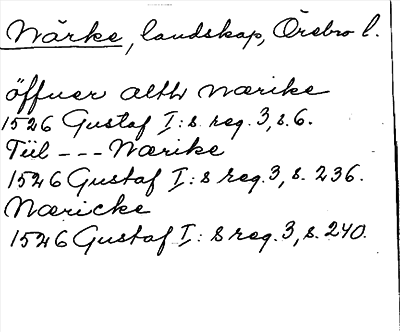 Närke, landskap, Örebro l.
öffuer alth Nærike
1526 Gustaf I:s reg. 3, s. 6.
Tiil --- Nærike
1526 Gustaf I:s reg. 3, s. 236.
Næricke
1526 Gustaf I:s reg. 3, s. 240.